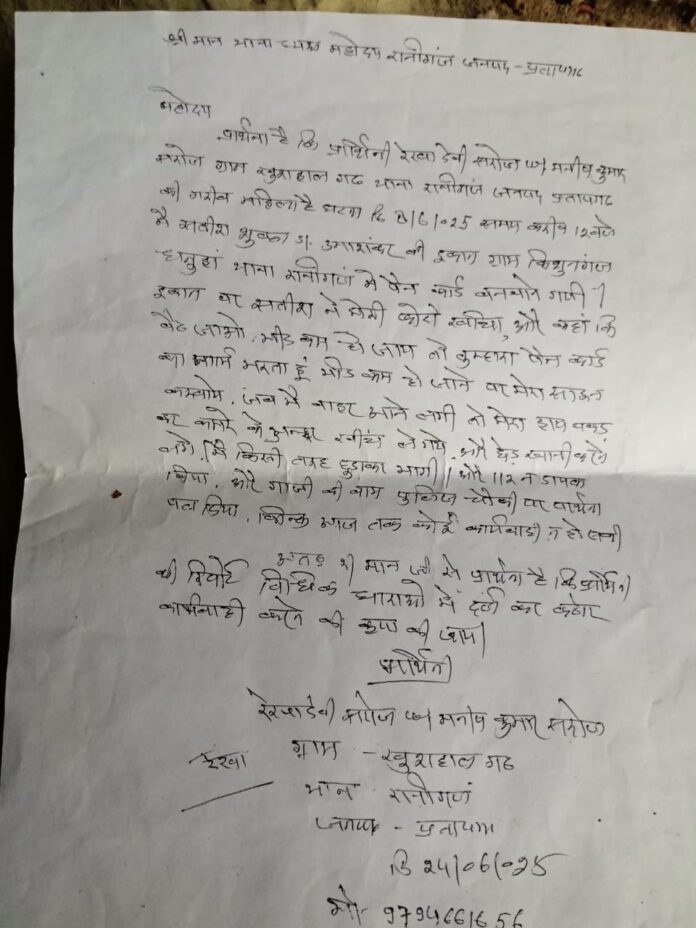 श्री मान थाना ध्यक्ष महोदय रानीगंज जनपद - प्रतापगढ
महोदय
प्रार्थना है कि प्रार्थिनी रेखा देवी सरोज w/ मनीष कुमार
सरोज ग्राम खुशहाल गढ थाना रानीगंज जनपद प्रतापगढ
की गरीब महिला है घटना दि समय करीब 12 बजे
मै सतीश शुक्ला S/. उमाशंकर की दुकान ग्राम
थाना रानीगंज मे पैन कार्ड बनवाने गयी।
दुकान पर सतीश ने मेरी फोटो खींचा, और कहां कि
बैठ जाओ. भीड कम हो जाय तो तुम्हारा पैन कार्ड
का फार्म भरता हूं भीड कम हो जाने पर मेरा
जब मै बाहर आने लगी तो मेरा हाथ पकड
कर कमरे के अन्दर खींच ले गये, और छेड खानी करने
लगे. मै किसी तरह छुडाकर भागी। और 112 न डायल
किया. और गाजी की बाग पुलिस चौकी पर प्रार्थना
पत्र दिया. किन्तु आज तक कोई कार्यवाही न हो सकी
अतः श्री मान जी से प्रार्थना है कि प्रार्थिनी
की रिपोर्ट विधिक धाराओ में दर्ज कर कठोर
कार्यवाही करने की कृपा की जाय।
प्रार्थिनी
रेखा देवी सरोज w/ मनीष कुमार सरोज
ग्राम - खुशहाल गढ
रेखा
थाना रानीगंज
जनपद - प्रतापगढ
दि 24/06/025
मो. 9794661656